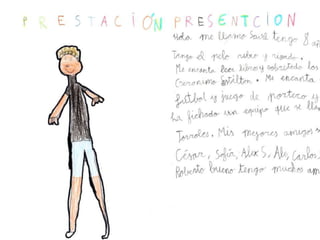 PRESTACIÓN PRESENTCION
Hola me llamo Saúl tengo 8
Tengo el pelo rubio y rizado.
Me encanta leer libros y sobretodo los
Geronimo Stilton. Me encanta
futbol y juego de portero y
ha fichado un equipo que se
Torroles. Mis mejores amigos
César, Sofía, Alex S, Als, Carlos
Roberto bueno tengo muchos am